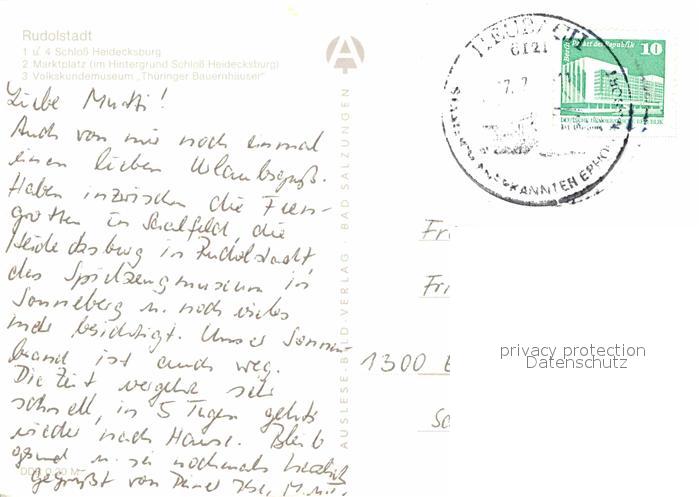 Rudolstadt
1 u. 4 Schloß Heidecksburg
2 Marktplatz (im Hintergrund Schloß Heidecksburg)
3 Volkskundemuseum „Thüringer Bauernhäuser"
Liebe Mutti!
Auch von mir noch einmal
einen lieben Urlaubsgruß.
Haben inzwischen die Feen-
grotten in Saalfeld, die
Heidecksburg in Rudolstadt
das Spielzeugmuseum in
Sonneberg u. noch vieles
mehr besichtigt. Unser Sonnen-
brand ist auch weg.
Die Zeit vergeht sehr
schnell, in 5 Tagen geht's
wieder nach Hause. Bleib
gesund u. sei nochmals herzlich
gegrüßt von Deiner
DDR 0,20 M
AUSLESE-BILD-VERLAG · BAD SALZUNGEN
6121
STAATLICH ANERKANNTER ERHOLUNGSORT
Berlin Palast der Republik 10
DEUTSCHE DEMOKRATISCHE REPUBLIK
1300
privacy protection
Datenschutz